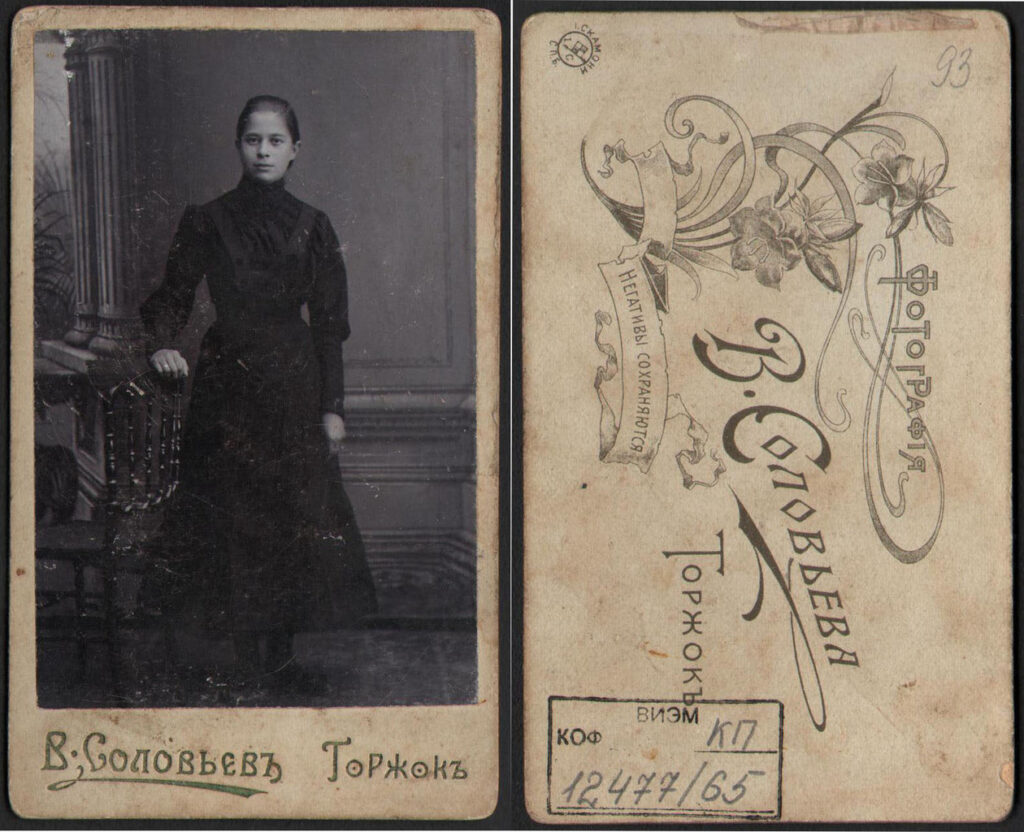 В. Соловьевъ Торжокъ
93
Фотографія
В. Соловьева
Торжокъ
Негативы сохраняются
ВИЭМ
КОФ КП
12477/65